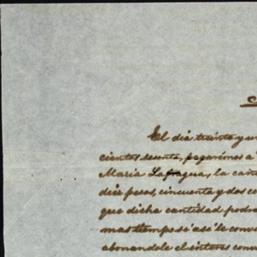 El dia treinta y u
cientos sesenta, pagaremos a
Maria Lafragua, la can
diez pesos, cincuenta y dos c
que dicha cantidad podra
mas tiempo si asi le conv
abonandole el interes conv